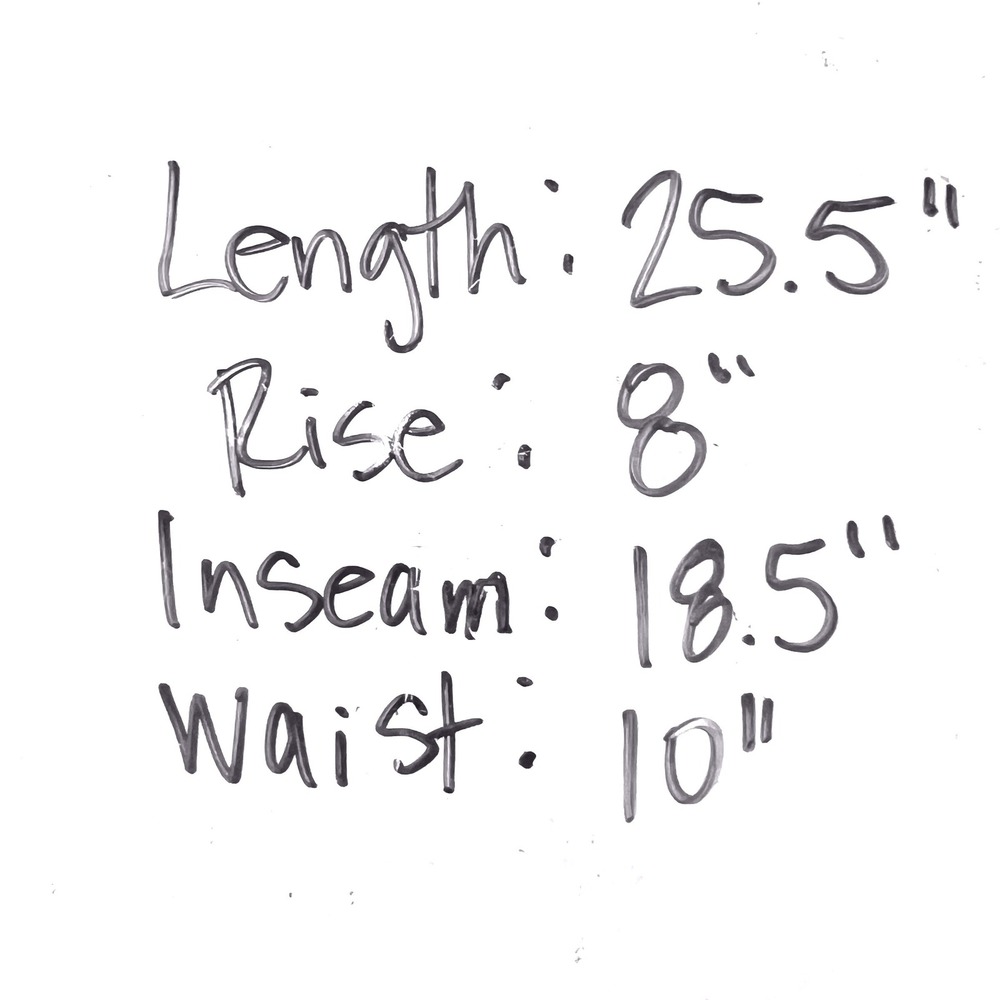 Length: 25.5"
Rise: 8"
Inseam: 18.5"
Waist: 10"